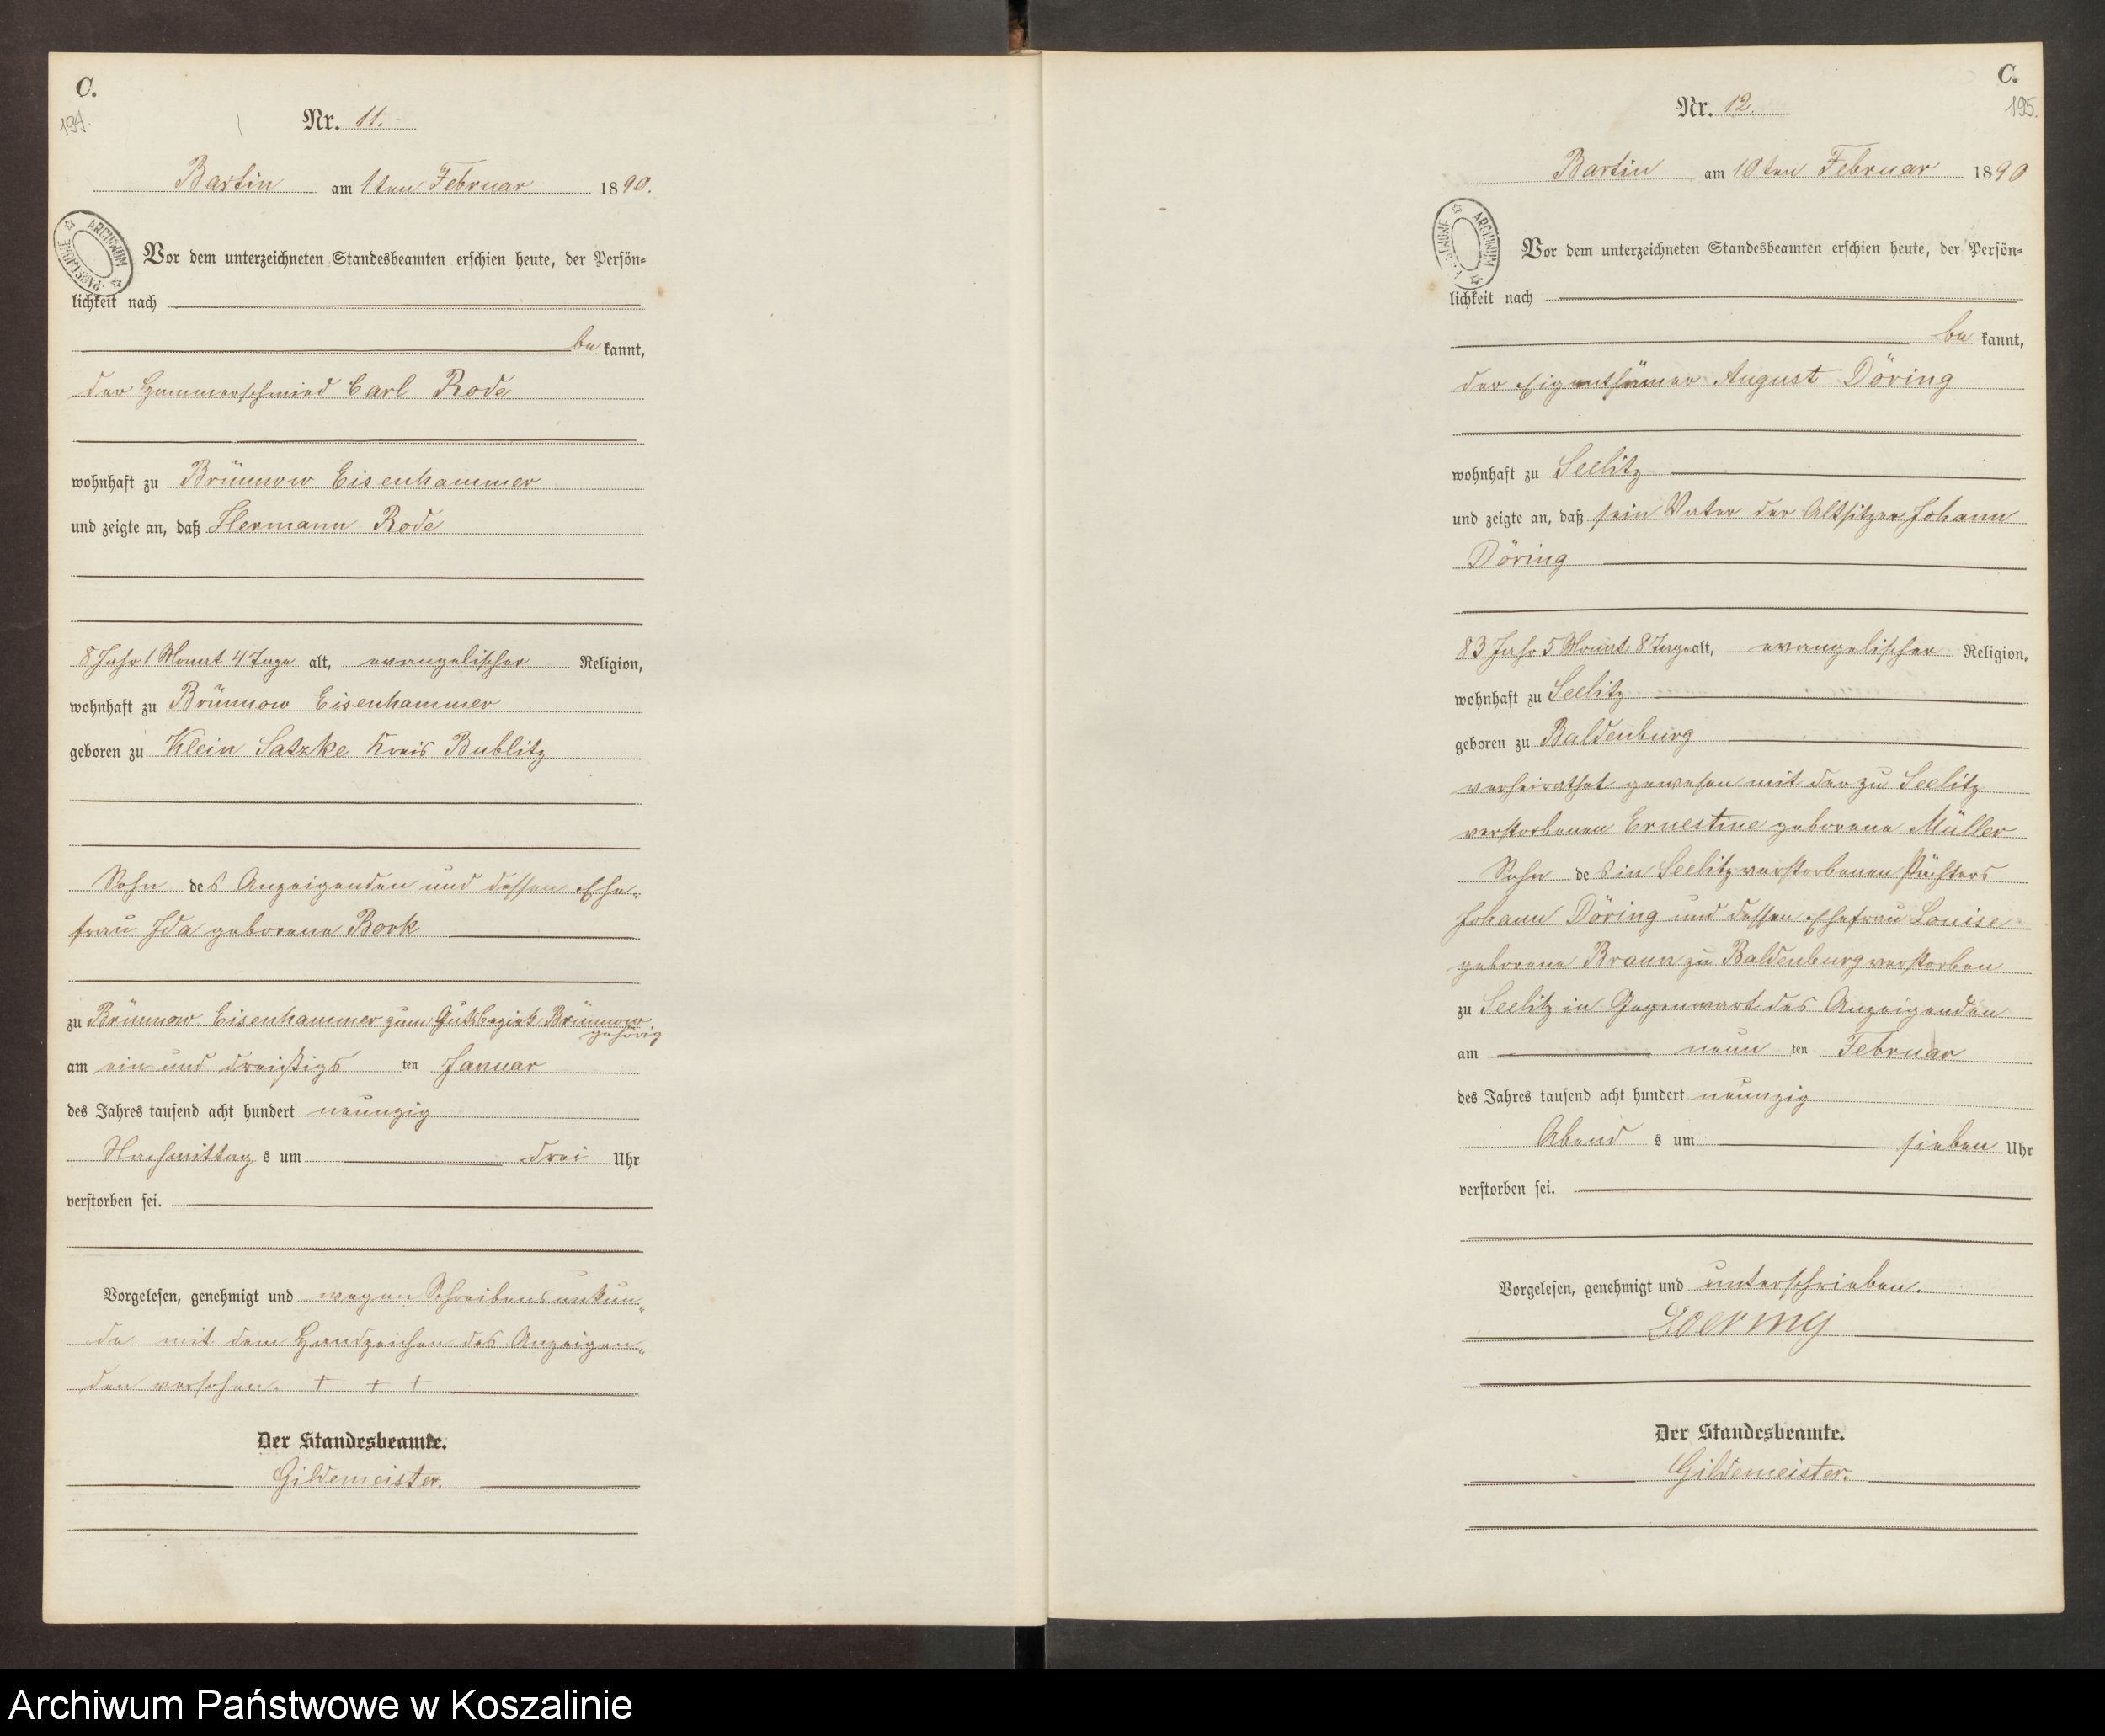 C.
194.
Nr. 11.
Bartin am 1ten Februar 1890.
ARCHIWUM PAŃSTWOWE
Vor dem unterzeichneten Standesbeamten erschien heute, der Persön-
lichkeit nach
be kannt,
der Hammerschmied Carl Rode
wohnhaft zu Brünnow Eisenhammer
und zeigte an, daß Hermann Rode
8 Jahr 1 Monat 4 Tage alt, evangelischer Religion,
wohnhaft zu Brünnow Eisenhammer
geboren zu Klein Satzke Kreis Bublitz
Sohn des Anzeigenden und dessen Ehe-
frau Ida geborene Bork
zu Brünnow Eisenhammer zum Gutsbezirk Brünnow
gehörig
am ein und dreißigs ten Januar
des Jahres tausend acht hundert neunzig
Nachmittag s um drei Uhr
verstorben sei.
Vorgelesen, genehmigt und wegen Schreibensunkun-
de mit dem Handzeichen des Anzeigen-
den versehen. + + +
Der Standesbeamte.
Gildemeister.
C.
195.
Nr. 12.
Bartin am 10ten Februar 1890
ARCHIWUM PAŃSTWOWE
Vor dem unterzeichneten Standesbeamten erschien heute, der Persön-
lichkeit nach
be kannt,
der Eigenthümer August Döring
wohnhaft zu Seelitz
und zeigte an, daß sein Vater der Altsitzer Johann
Döring
83 Jahr 5 Monat 8 Tage alt, evangelischer Religion,
wohnhaft zu Seelitz
geboren zu Baldenburg
verheirathet gewesen mit der zu Seelitz
verstorbenen Ernestine geborene Müller
Sohn des in Seelitz verstorbenen Pächters
Johann Döring und dessen Ehefrau Louise
geborene Braun zu Baldenburg verstorben
zu Seelitz in Gegenwart des Anzeigenden
am neun ten Februar
des Jahres tausend acht hundert neunzig
Abend s um sieben Uhr
verstorben sei.
Vorgelesen, genehmigt und unterschrieben.
Doering
Der Standesbeamte.
Gildemeister.
Archiwum Państwowe w Koszalinie